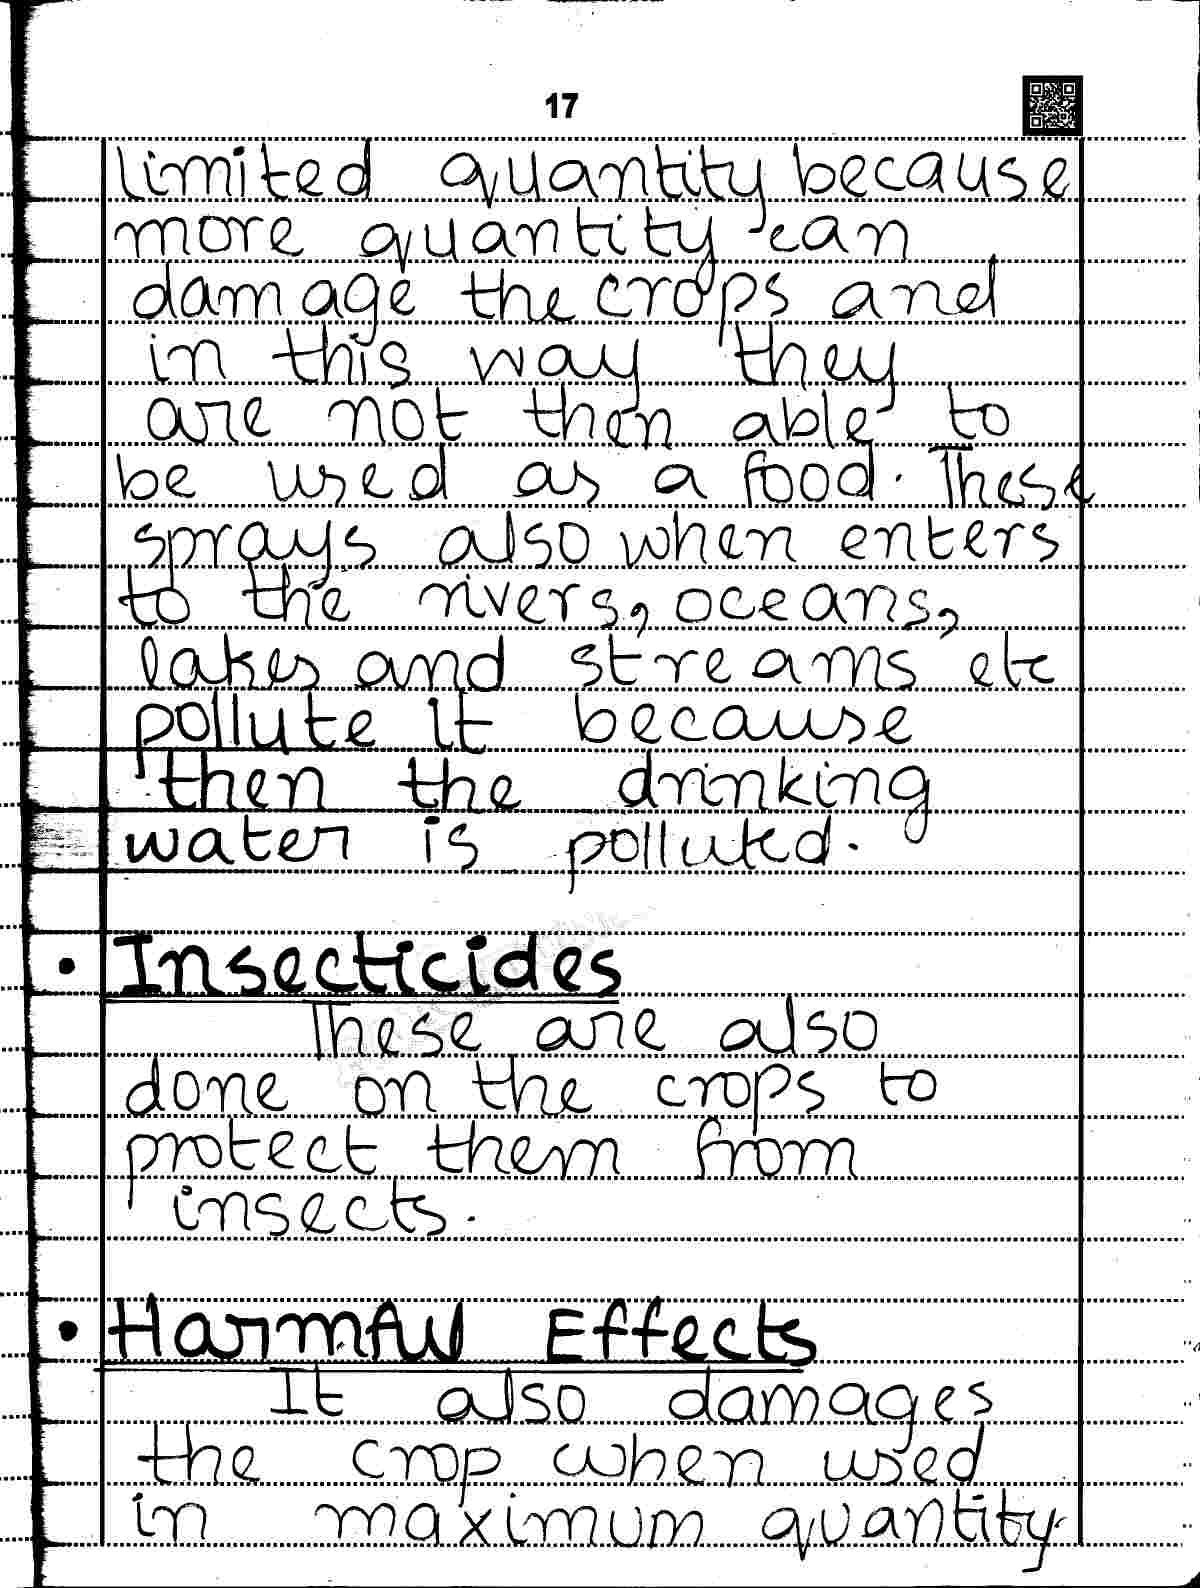 17
limited quantity because
more quantity can
damage the crops and
in this way they
are not then able to
be used as a food. These
sprays also when enters
to the rivers, oceans,
lakes and streams etc
pollute it because
then the drinking
water is polluted.
• Insecticides
These are also
done on the crops to
protect them from
insects.
• Harmful Effects
It also damages
the crop when used
in maximum quantity.